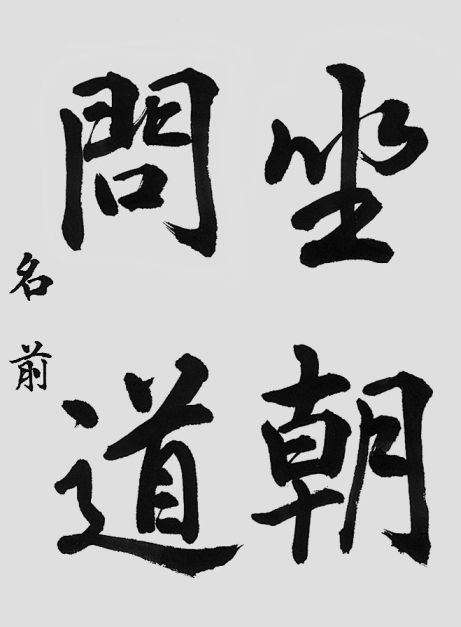 坐朝
問道
名前